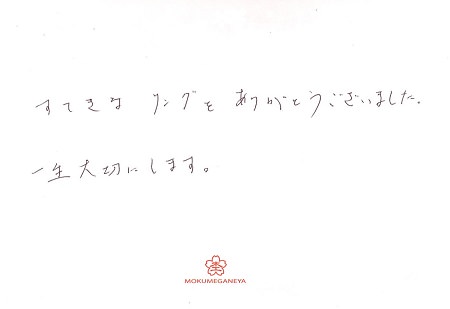 すてきな リングを ありがとうございました.
一生大切にします。
MOKUMEGANEYA